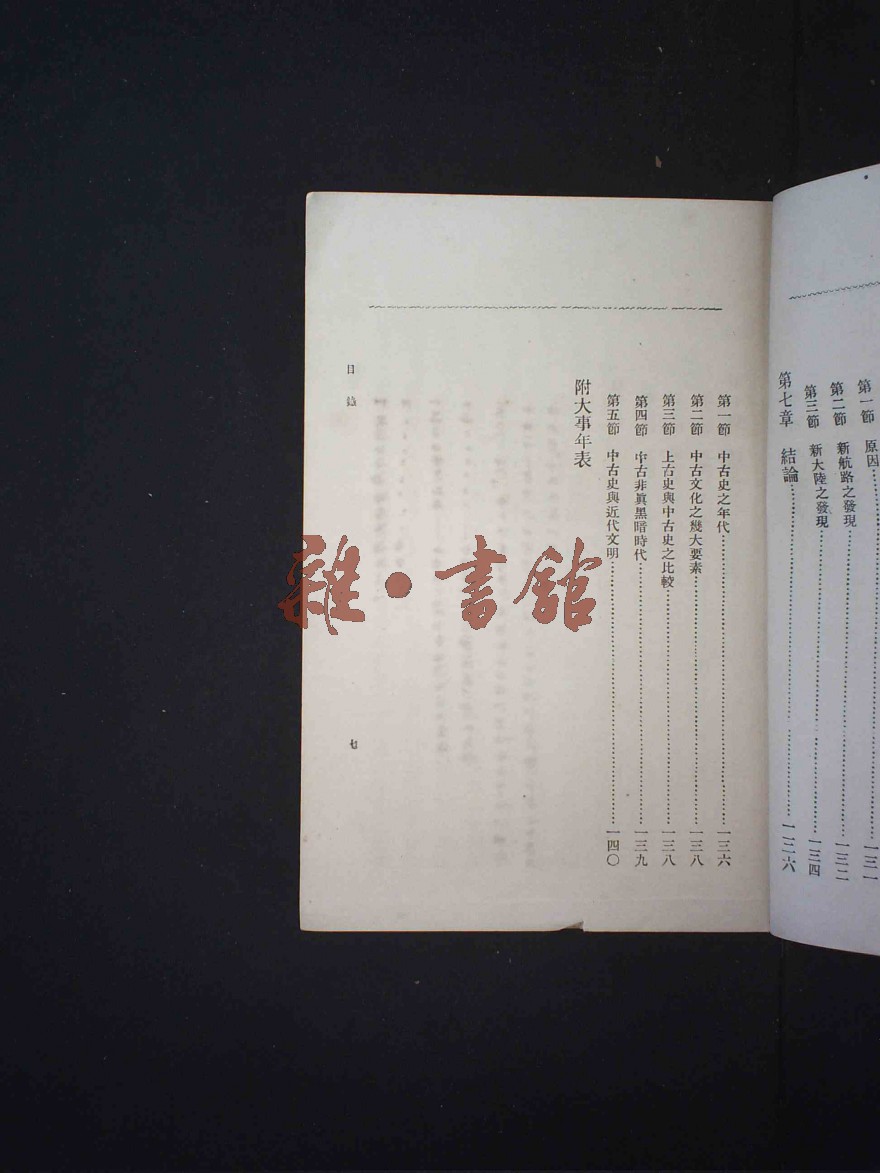 第一節 原因……一三一
第二節 新航路之發現……一三二
第三節 新大陸之發現……一三四
第七章 結論……一三六
第一節 中古史之年代……一三六
第二節 中古文化之幾大要素……一三八
第三節 上古史與中古史之比較……一三八
第四節 中古非眞黑暗時代……一三九
第五節 中古史與近代文明……一四〇
附大事年表
目錄
七
雜·書舘